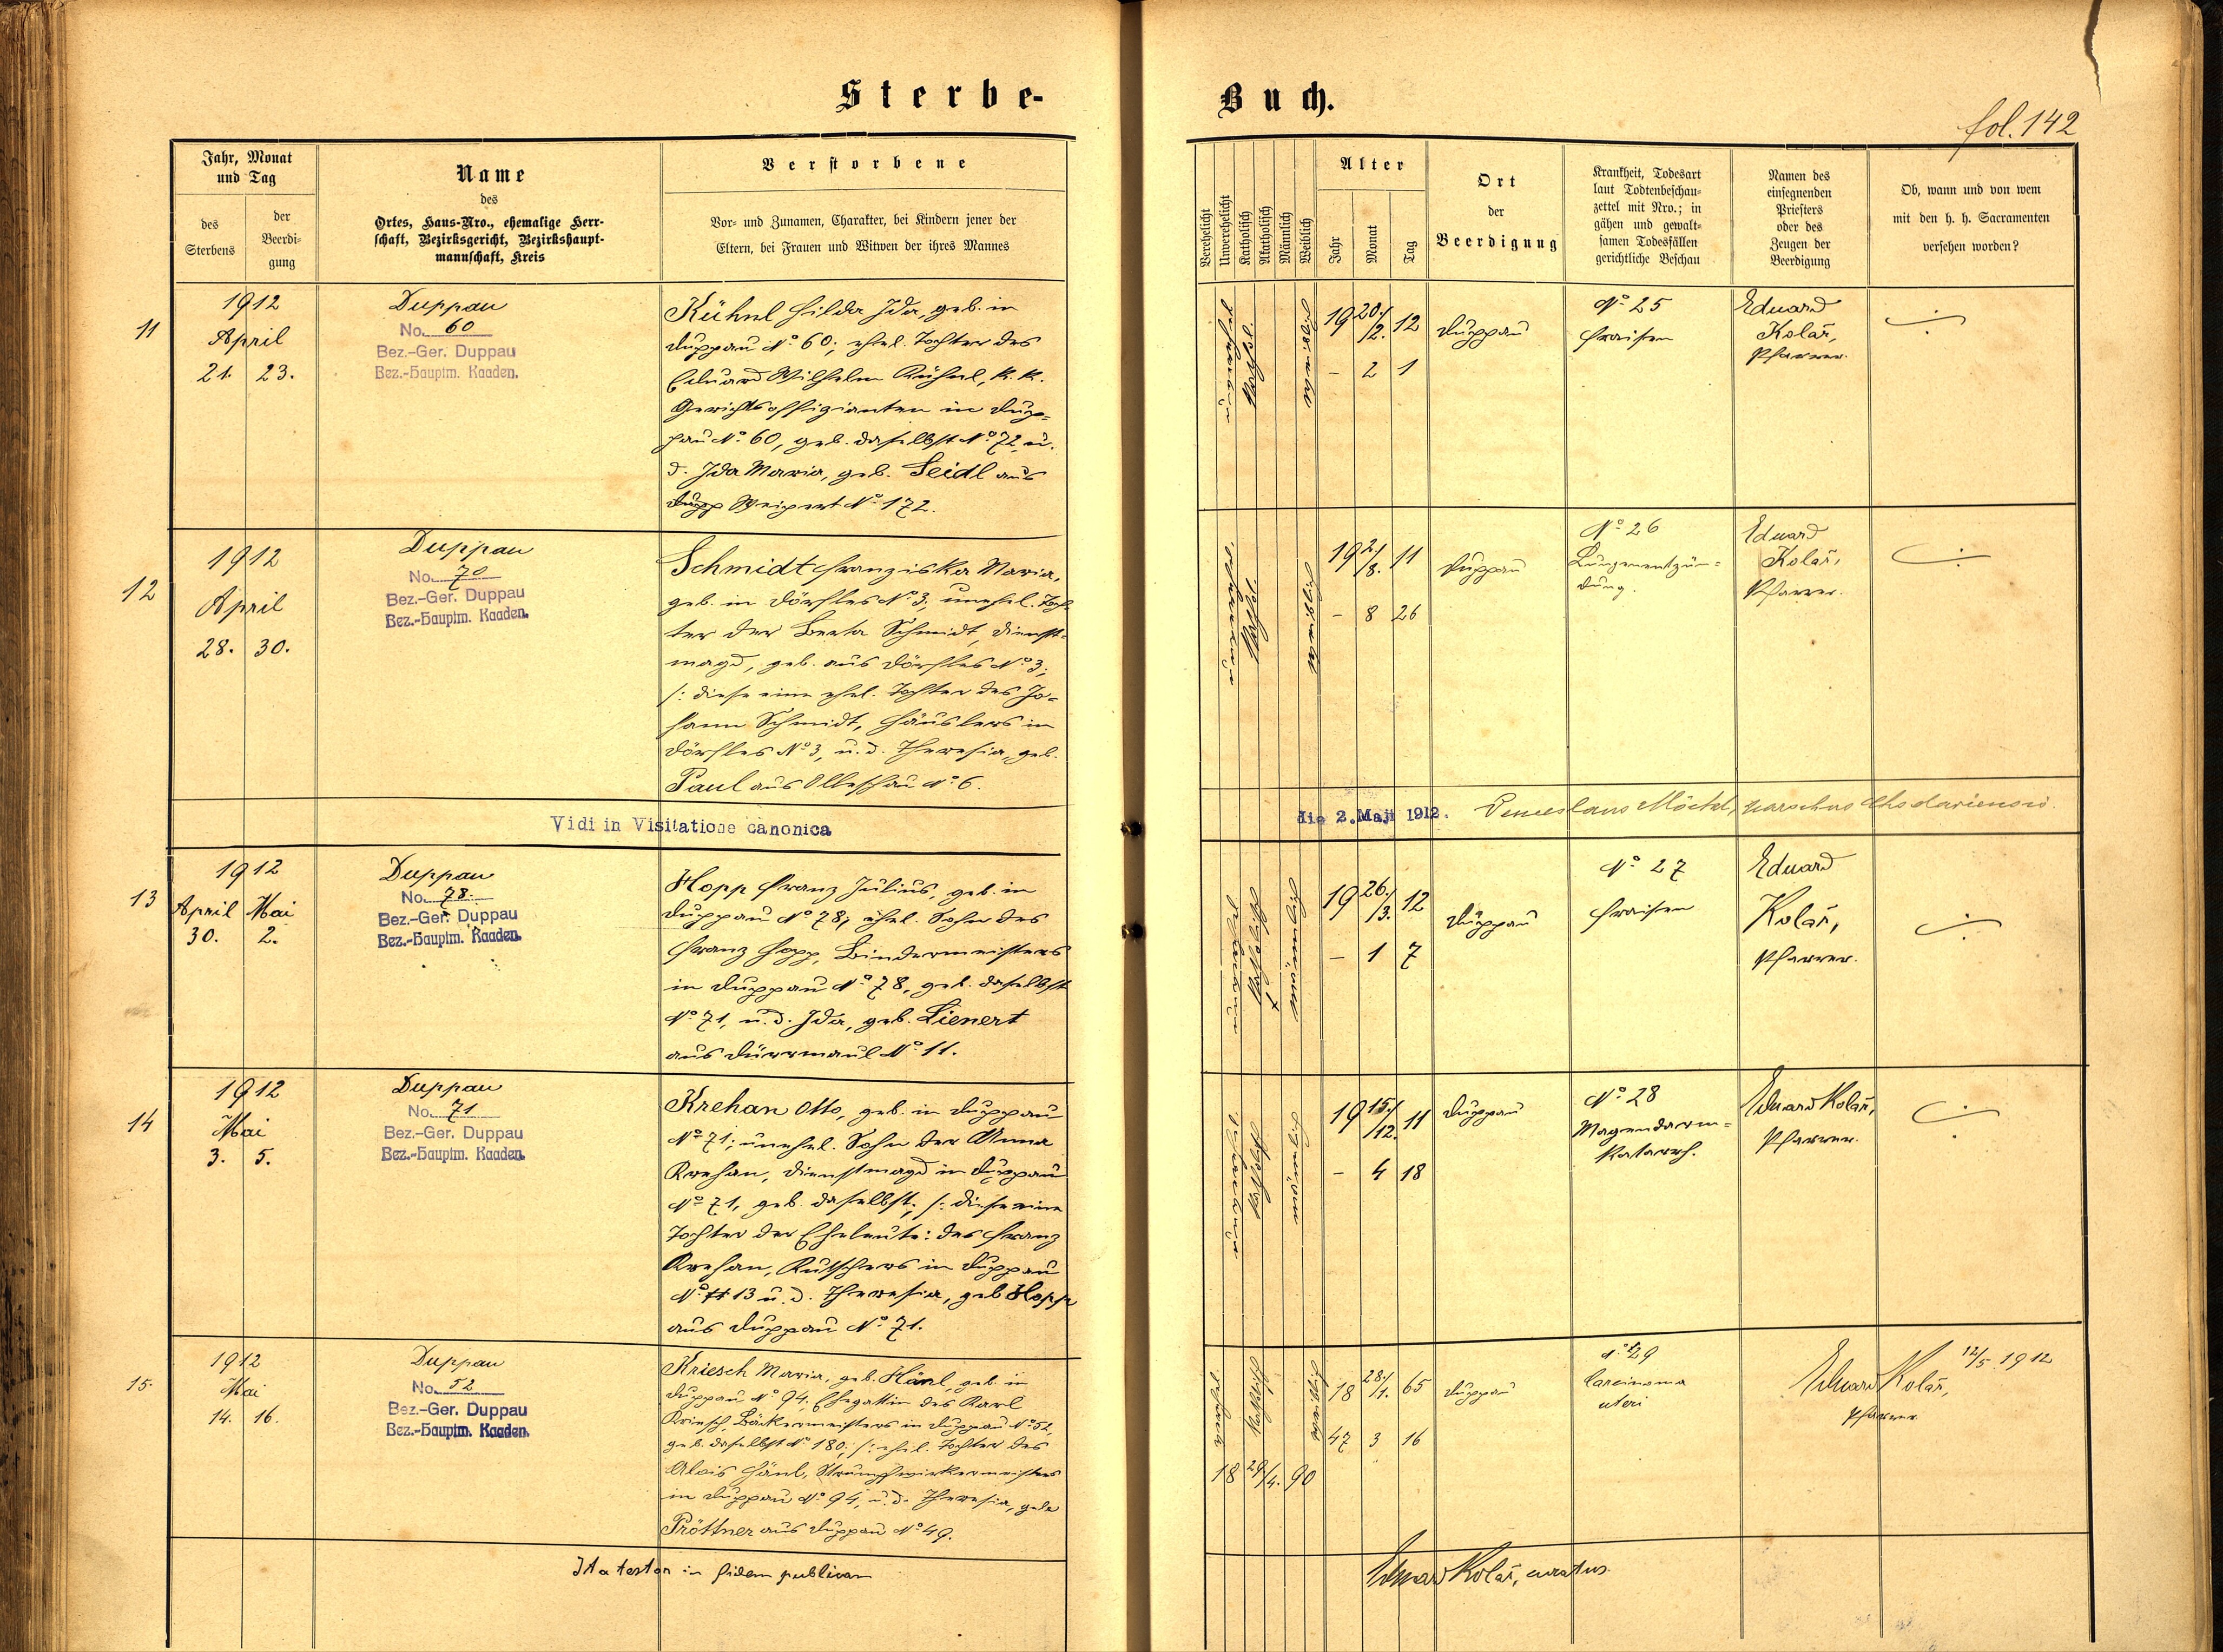 Sterbe-
Buch.
fol. 142
Jahr, Monat
und Tag
des
Sterbens
der
Beerdi-
gung
Name
des
Ortes, Haus-Nro., ehemalige Herr-
schaft, Bezirksgericht, Bezirkshaupt-
mannschaft, Kreis
Verstorbene
Vor- und Zunamen, Charakter, bei Kindern jener der
Eltern, bei Frauen und Witwen der ihres Mannes
Verehelicht
Unverehelicht
Katholisch
Akatholisch
Männlich
Weiblich
Alter
Jahr
Monat
Tag
Ort
der
Beerdigung
Krankheit, Todesart
laut Todtenbeschau-
zettel mit Nro.; in
gähen und gewalt-
samen Todesfällen
gerichtliche Beschau
Namen des
einsegnenden
Priesters
oder des
Zeugen der
Beerdigung
Ob, wann und von wem
mit den h. h. Sacramenten
versehen worden?
11
1912
April
21. 23.
Duppau
No. 60
Bez.-Ger. Duppau
Bez.-Hauptm. Kaaden.
Kühnl Hilda Ida, geb. in
Duppau No 60; ehel. Tochter des
Eduard Wilhelm Kühnl, k. k.
Gerichtsoffizianten in Dup-
pau No 60, geb. daselbst No 72, u.
d. Ida Maria, geb. Seidl aus
Dupp Weipert No 172.
kathol.
weiblich
19 20./2. 12
- 2 1
Duppau
No 25
Fraisen
Eduard
Kolář,
Pfarrer.
12
1912
April
28. 30.
Duppau
No. 70
Bez.-Ger. Duppau
Bez.-Hauptm. Kaaden.
Schmidt Franziska Maria,
geb. in Dörfles No 3; unehel. Toch-
ter der Berta Schmidt, Dienst-
magd, geb. aus Dörfles No 3;
/: diese eine ehel. Tochter des Jo-
hann Schmidt, Häuslers in
Dörfles No 3, u. d. Theresia, geb.
Paul aus Olleschau No 6.
kathol.
weiblich
19 2/8. 11
- 8 26
Duppau
No 26
Lungenentzün-
dung.
Eduard
Kolář,
Pfarrer.
Vidi in Visitatione canonica
die 2. Maji 1912. Venceslaus Möckl, parochus
13
1912
April Mai
30. 2.
Duppau
No. 78.
Bez.-Ger. Duppau
Bez.-Hauptm. Kaaden.
Hopp Franz Julius, geb. in
Duppau No 78; ehel. Sohn des
Franz Hopp, Bindermeisters
in Duppau No 78, geb. daselbst
No 71, u. d. Ida, geb. Lienert
aus Dürrmaul No 11.
katholisch
männlich
19 26./3. 12
- 1 7
Duppau
No 27
Fraisen
Eduard
Kolář,
Pfarrer.
14
1912
Mai
3. 5.
Duppau
No. 71
Bez.-Ger. Duppau
Bez.-Hauptm. Kaaden.
Krehan Otto, geb. in Duppau
No 71; unehel. Sohn der Anna
Krehan, Dienstmagd in Duppau
No 71, geb. daselbst; /: diese eine
Tochter der Eheleute: des Franz
Krehan, Kutschers in Duppau
No 13 u. d. Theresia, geb Hopp
aus Duppau No 71.
kathol.
männlich
19 15./12. 11
- 4 18
Duppau
No 28
Magendarm-
katarrh.
Eduard Kolář,
Pfarrer.
15.
1912
Mai
14. 16.
Duppau
No. 52
Bez.-Ger. Duppau
Bez.-Hauptm. Kaaden.
Kriesch Maria, geb. Hänl, geb. in
Duppau No 94; Ehegattin des Karl
Kriesch, Bäckermeisters in Duppau No 52,
geb. daselbst No 180; /: ehel. Tochter des
Alois Hänl, Strumpfwirkermeisters
in Duppau No 94, u. d. Theresia, geb.
Pröttner aus Duppau No 49.
katholisch
weiblich
18 28./1. 65
47 3 16
18 29/4. 90
Duppau
No 29
Carcinoma
uteri
12/5. 1912
Eduard Kolář,
Pfarrer
Ita testor in fidem publicam
Eduard Kolář, curatus.